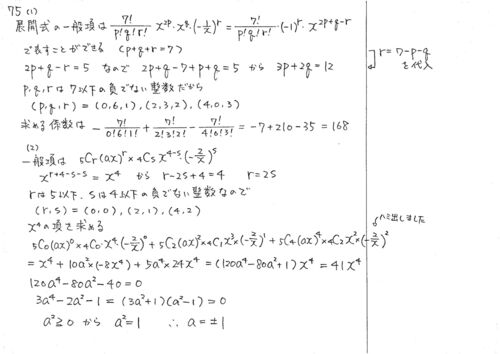 75 (1)
展開式の一般項は 7!/(p!q!r!) x^{2p}・x^q・(-1/x)^r = 7!/(p!q!r!)・(-1)^r・x^{2p+q-r}
で表すことができる (p+q+r=7)
2p+q-r=5 なので 2p+q-7+p+q=5 から 3p+2q=12
r=7-p-q
を代入
p,q,rは7以下の負でない整数だから
(p,q,r)=(0,6,1),(2,3,2),(4,0,3)
求める係数は -7!/(0!6!1!)+7!/(2!3!2!)-7!/(4!0!3!)=-7+210-35=168
(2)
一般項は ₅Cr(ax)^r×₄Cs x^{4-s}・(-2/x)^s
x^{r+4-s-s}=x⁴ から r-2s+4=4 r=2s
rは5以下、sは4以下の負でない整数なので
(r,s)=(0,0),(2,1),(4,2)
x⁴の項を求める
ハミ出しました
₅C₀(ax)⁰×₄C₀・x⁴・(-2/x)⁰+₅C₂(ax)²×₄C₁x³×(-2/x)¹+₅C₄(ax)⁴×₄C₂x²×(-2/x)²
=x⁴+10a²×(-8x⁴)+5a⁴×24x⁴=(120a⁴-80a²+1)x⁴=41x⁴
120a⁴-80a²-40=0
3a⁴-2a²-1=(3a²+1)(a²-1)=0
a²≧0 から a²=1 ∴a=±1